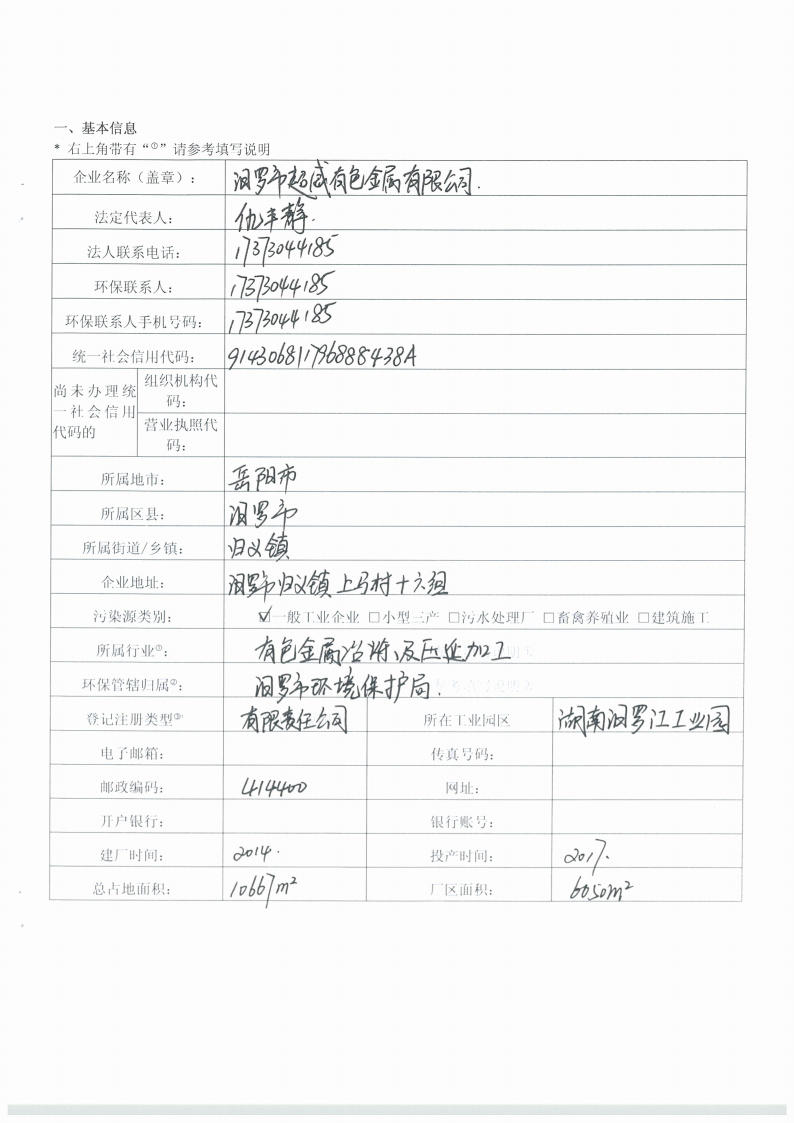 一、基本信息
* 右上角带有“①”请参考填写说明
企业名称（盖章）： 汨罗市超威有色金属有限公司.
法定代表人： 仇丰静.
法人联系电话： 17373044185
环保联系人： 17373044185
环保联系人手机号码： 17373044185
统一社会信用代码： 91430681796888438A
尚未办理统一社会信用代码的
组织机构代码：
营业执照代码：
所属地市： 岳阳市
所属区县： 汨罗市
所属街道/乡镇： 归义镇
企业地址： 汨罗市归义镇上马村十六组
污染源类别： ☑一般工业企业 □小型三产 □污水处理厂 □畜禽养殖业 □建筑施工
所属行业①： 有色金属冶炼及压延加工
环保管辖归属②： 汨罗市环境保护局.
登记注册类型③ 有限责任公司 所在工业园区 湖南汨罗江工业园
电子邮箱： 传真号码：
邮政编码： 414400 网址：
开户银行： 银行账号：
建厂时间： 2014. 投产时间： 2017.
总占地面积： 10667m² 厂区面积： 6050m²